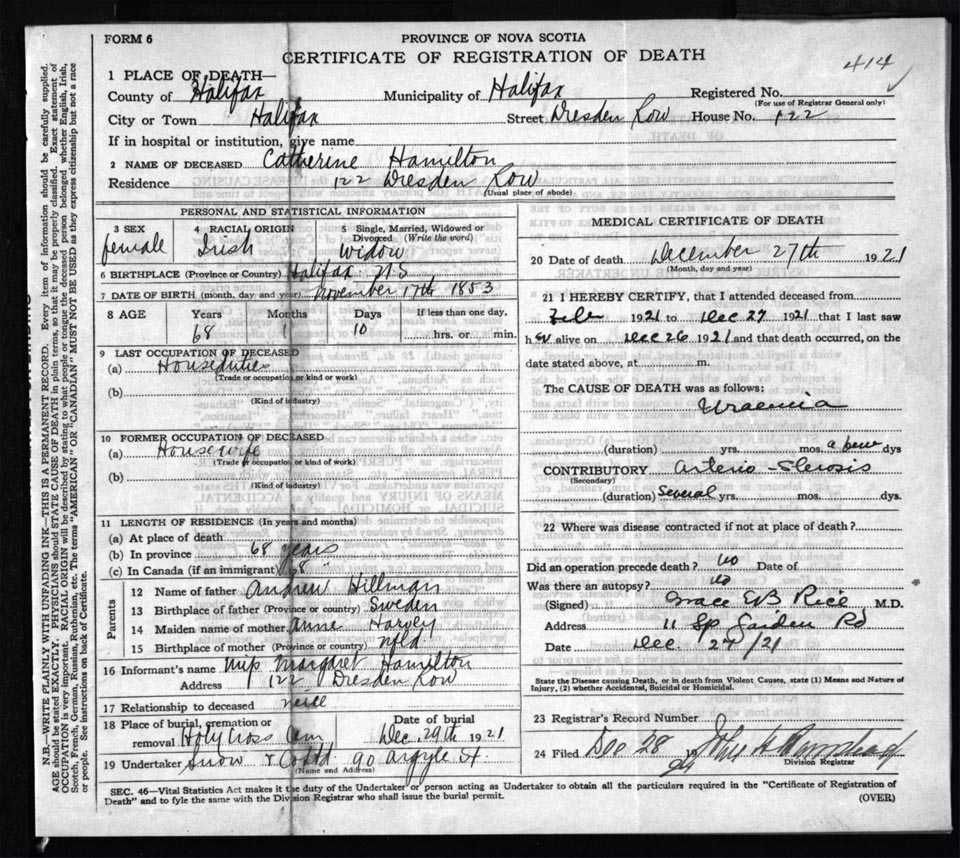 FORM 6
PROVINCE OF NOVA SCOTIA
CERTIFICATE OF REGISTRATION OF DEATH
414
1 PLACE OF DEATH—
County of Halifax Municipality of Halifax Registered No.
(For use of Registrar General only)
City or Town Halifax Street Dresden Row House No. 122
If in hospital or institution, give name
2 NAME OF DECEASED Catherine Hamilton
Residence 122 Dresden Row
(Usual place of abode)
PERSONAL AND STATISTICAL INFORMATION
3 SEX 4 RACIAL ORIGIN 5 Single, Married, Widowed or Divorced (Write the word)
female Irish Widow
6 BIRTHPLACE (Province or Country) Halifax N.S
7 DATE OF BIRTH (month, day and year) November 17th 1853
8 AGE Years Months Days If less than one day,
68 1 10 hrs. or min.
9 LAST OCCUPATION OF DECEASED
(a) Houseduties
(Trade or occupation or kind or work)
(b)
(Kind of industry)
10 FORMER OCCUPATION OF DECEASED
(a) Housewife
(Trade or occupation or kind or work)
(b)
(Kind of industry)
11 LENGTH OF RESIDENCE (In years and months)
(a) At place of death
(b) In province 68 years
(c) In Canada (if an immigrant) 68 "
Parents
12 Name of father Andrew Hillman
13 Birthplace of father (Province or country) Sweden
14 Maiden name of mother Anne Harvey
15 Birthplace of mother (Province or country) Nfld
16 Informant's name Miss Margaret Hamilton
Address 122 Dresden Row
17 Relationship to deceased niece
18 Place of burial, cremation or removal Holy Cross Cem Date of burial Dec. 29th 1921
19 Undertaker Snow & Co Ltd 90 Argyle St.
(Name and Address)
MEDICAL CERTIFICATE OF DEATH
20 Date of death December 27th 1921
(Month, day and year)
21 I HEREBY CERTIFY, that I attended deceased from
1921 to Dec 27 1921 that I last saw
her alive on Dec 26 1921 and that death occurred, on the
date stated above, at m.
The CAUSE OF DEATH was as follows:
Uraemia
(duration) yrs. mos. a few dys
CONTRIBUTORY Arterio-Sclerosis
(Secondary)
(duration) Several yrs. mos. dys.
22 Where was disease contracted if not at place of death?
Did an operation precede death? no Date of
Was there an autopsy? no
(Signed) Grace EB Rice M.D.
Address 11 Sp Garden Rd
Date Dec. 27/21
State the Disease Causing Death, or in death from Violent Causes, state (1) Means and Nature of
Injury, (2) whether Accidental, Suicidal or Homicidal.
23 Registrar's Record Number
24 Filed Dec 28 19
Division Registrar
SEC. 46—Vital Statistics Act makes it the duty of the Undertaker or person acting as Undertaker to obtain all the particulars required in the "Certificate of Registration of
Death" and to fyle the same with the Division Registrar who shall issue the burial permit.
(OVER)
N.B.—WRITE PLAINLY WITH UNFADING INK—THIS IS A PERMANENT RECORD. Every item of information should be carefully supplied.
AGE should be stated EXACTLY. PHYSICIANS should STATE CAUSE OF DEATH in plain terms, so that it may be properly classified. Exact statement of
OCCUPATION is very important. RACIAL ORIGIN will be described by stating to what people or tongue the deceased person belonged, whether English, Irish,
Scotch, French, German, Russian, Ruthenian, etc. The terms "AMERICAN" or "CANADIAN" MUST NOT BE USED as they express citizenship but not a race
or people. See instructions on back of Certificate.